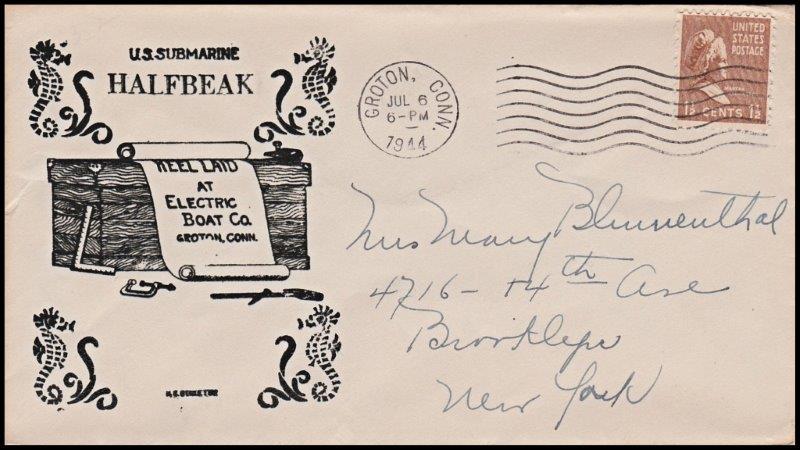 U.S. SUBMARINE
HALFBEAK
KEEL LAID
AT
ELECTRIC
BOAT CO.
GROTON, CONN.
GROTON, CONN.
JUL 6
6-PM
1944
UNITED
STATES
POSTAGE
1½ CENTS 1½
Mrs Mary Blumenthal
4716-14th Ave
Brooklyn
New York